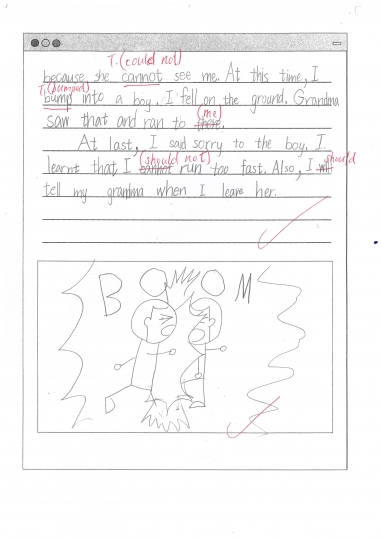 T. (could not)
because she cannot see me. At this time, I
T. (bumped)
bump into a boy. I fell on the ground. Grandma
(me)
saw that and ran to there.
At last, I said sorry to the boy. I
(should not) should
learnt that I cannot run too fast. Also, I will
tell my grandma when I leave her.
BOOM